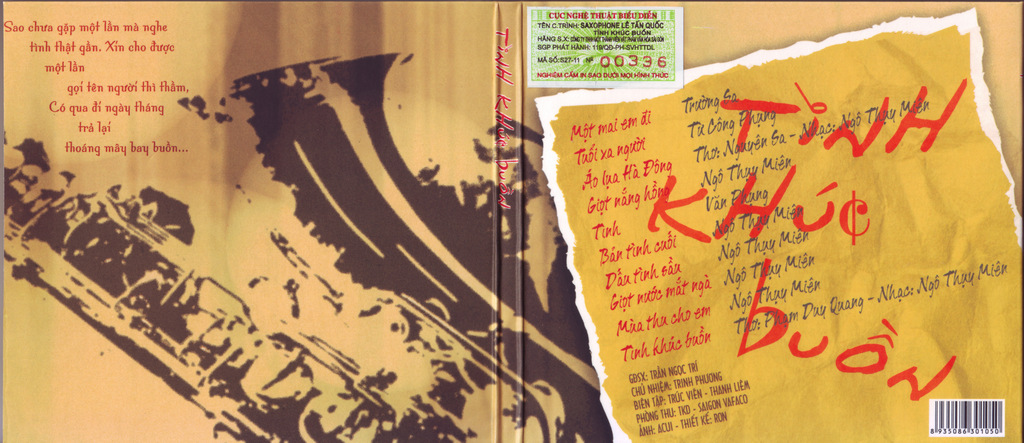 Sao chưa gặp một lần mà nghe
tình thật gần. Xin cho được
một lần
gọi tên người thì thầm,
Có qua đi ngày tháng
trả lại
thoáng mây bay buồn...
TÌNH KHÚC buồn
CỤC NGHỆ THUẬT BIỂU DIỄN
TÊN C.TRÌNH: SAXOPHONE LÊ TẤN QUỐC
TÌNH KHÚC BUỒN
HÃNG S.X:
SGP PHÁT HÀNH: 119/QĐ-PH-SVHTTDL
MÃ SỐ:S27-11 Nº 00336
NGHIÊM CẤM IN SAO DƯỚI MỌI HÌNH THỨC
TÌNH
KHÚC
buồn
Một mai em đi
Trường Sa
Tuổi xa người
Từ Công Phụng
Áo lụa Hà Đông
Thơ: Nguyên Sa - Nhạc: Ngô Thụy Miên
Giọt nắng hồng
Ngô Thụy Miên
Tình
Văn Phụng
Bản tình cuối
Ngô Thụy Miên
Dấu tình sầu
Ngô Thụy Miên
Giọt nước mắt ngà
Ngô Thụy Miên
Mùa thu cho em
Ngô Thụy Miên
Tình khúc buồn
Thơ: Phạm Duy Quang - Nhạc: Ngô Thụy Miên
GĐSX: TRẦN NGỌC TRÍ
CHỦ NHIỆM: TRINH PHƯƠNG
BIÊN TẬP: TRÚC VIÊN - THANH LIÊM
PHÒNG THU: TKD - SAIGON VAFACO
ẢNH: ACUI - THIẾT KẾ: RON
8 935086 301050